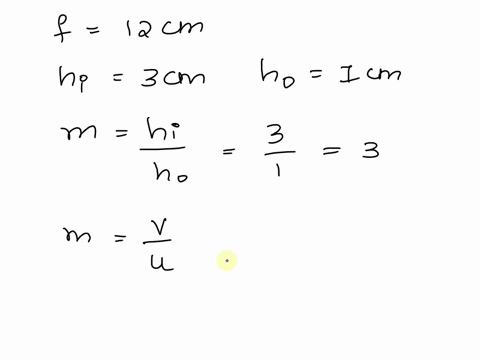 f = 12 cm
hi = 3 cm h₀ = 1 cm
m = hi/h₀ = 3/1 = 3
m = v/u